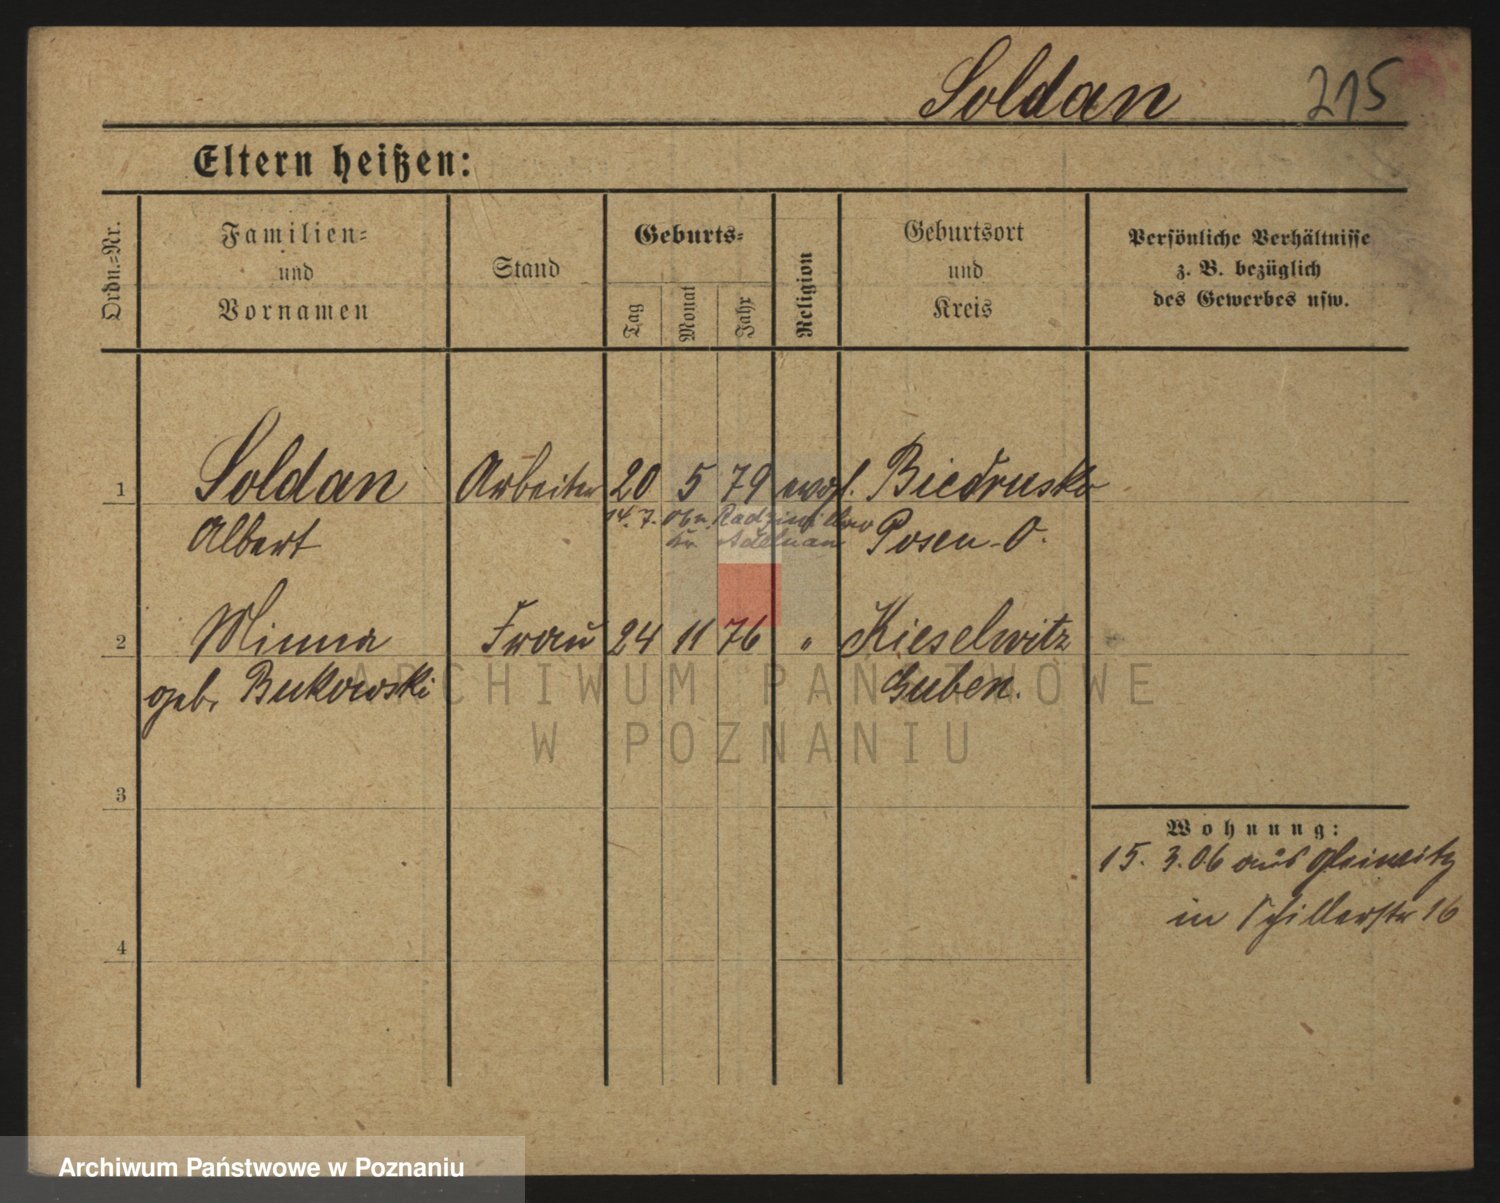 Soldan 215
Eltern heißen:
Ordn.=Nr.
Familien=
und
Vornamen
Stand
Geburts=
Tag
Monat
Jahr
Religion
Geburtsort
und
Kreis
Persönliche Verhältnisse
z. B. bezüglich
des Gewerbes usw.
1 Soldan Arbeiter 20 5 79 evgl. Biedrusko
14. 7.
Albert Posen-O.
2 Minna Frau 24 11 76 " Kieselwitz
geb. Bukowski Guben.
3
4
Wohnung:
15. 3. 06 aus Gleiwitz
in Schillerstr 16
ARCHIWUM PAŃSTWOWE
W POZNANIU
Archiwum Państwowe w Poznaniu